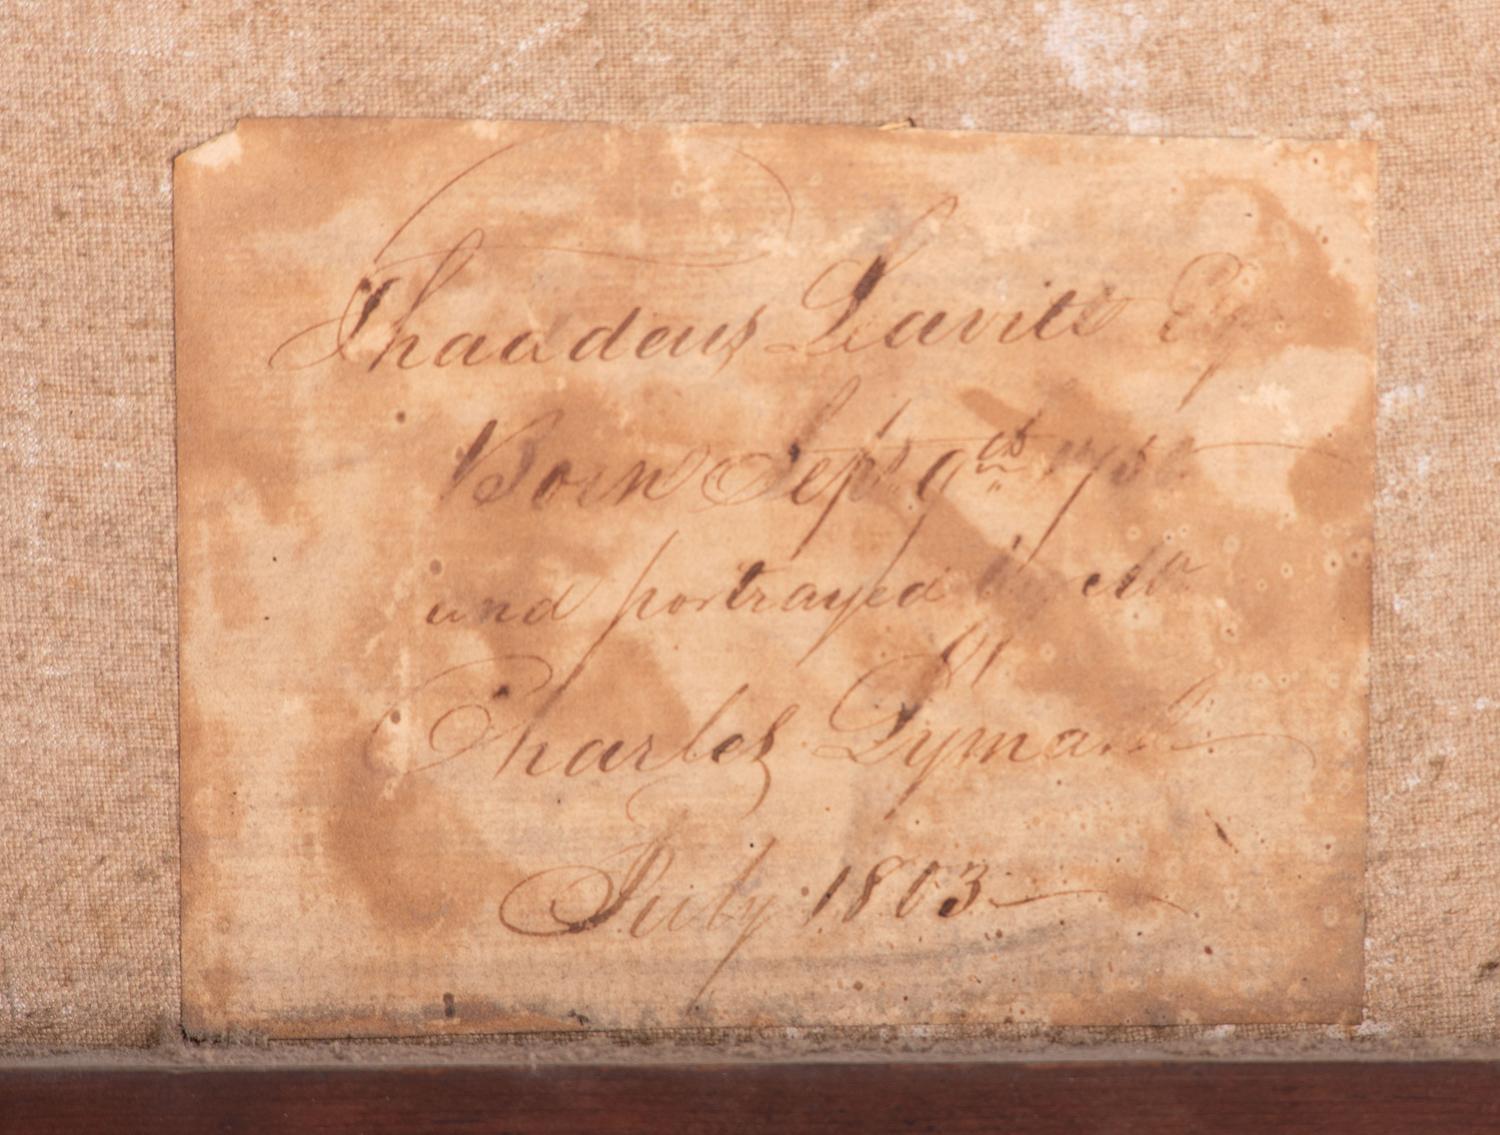 Thaddeus Leavitt Esq.
Born Sept 9th 175
and portrayed by Mr
Charles Lyman
July 1803